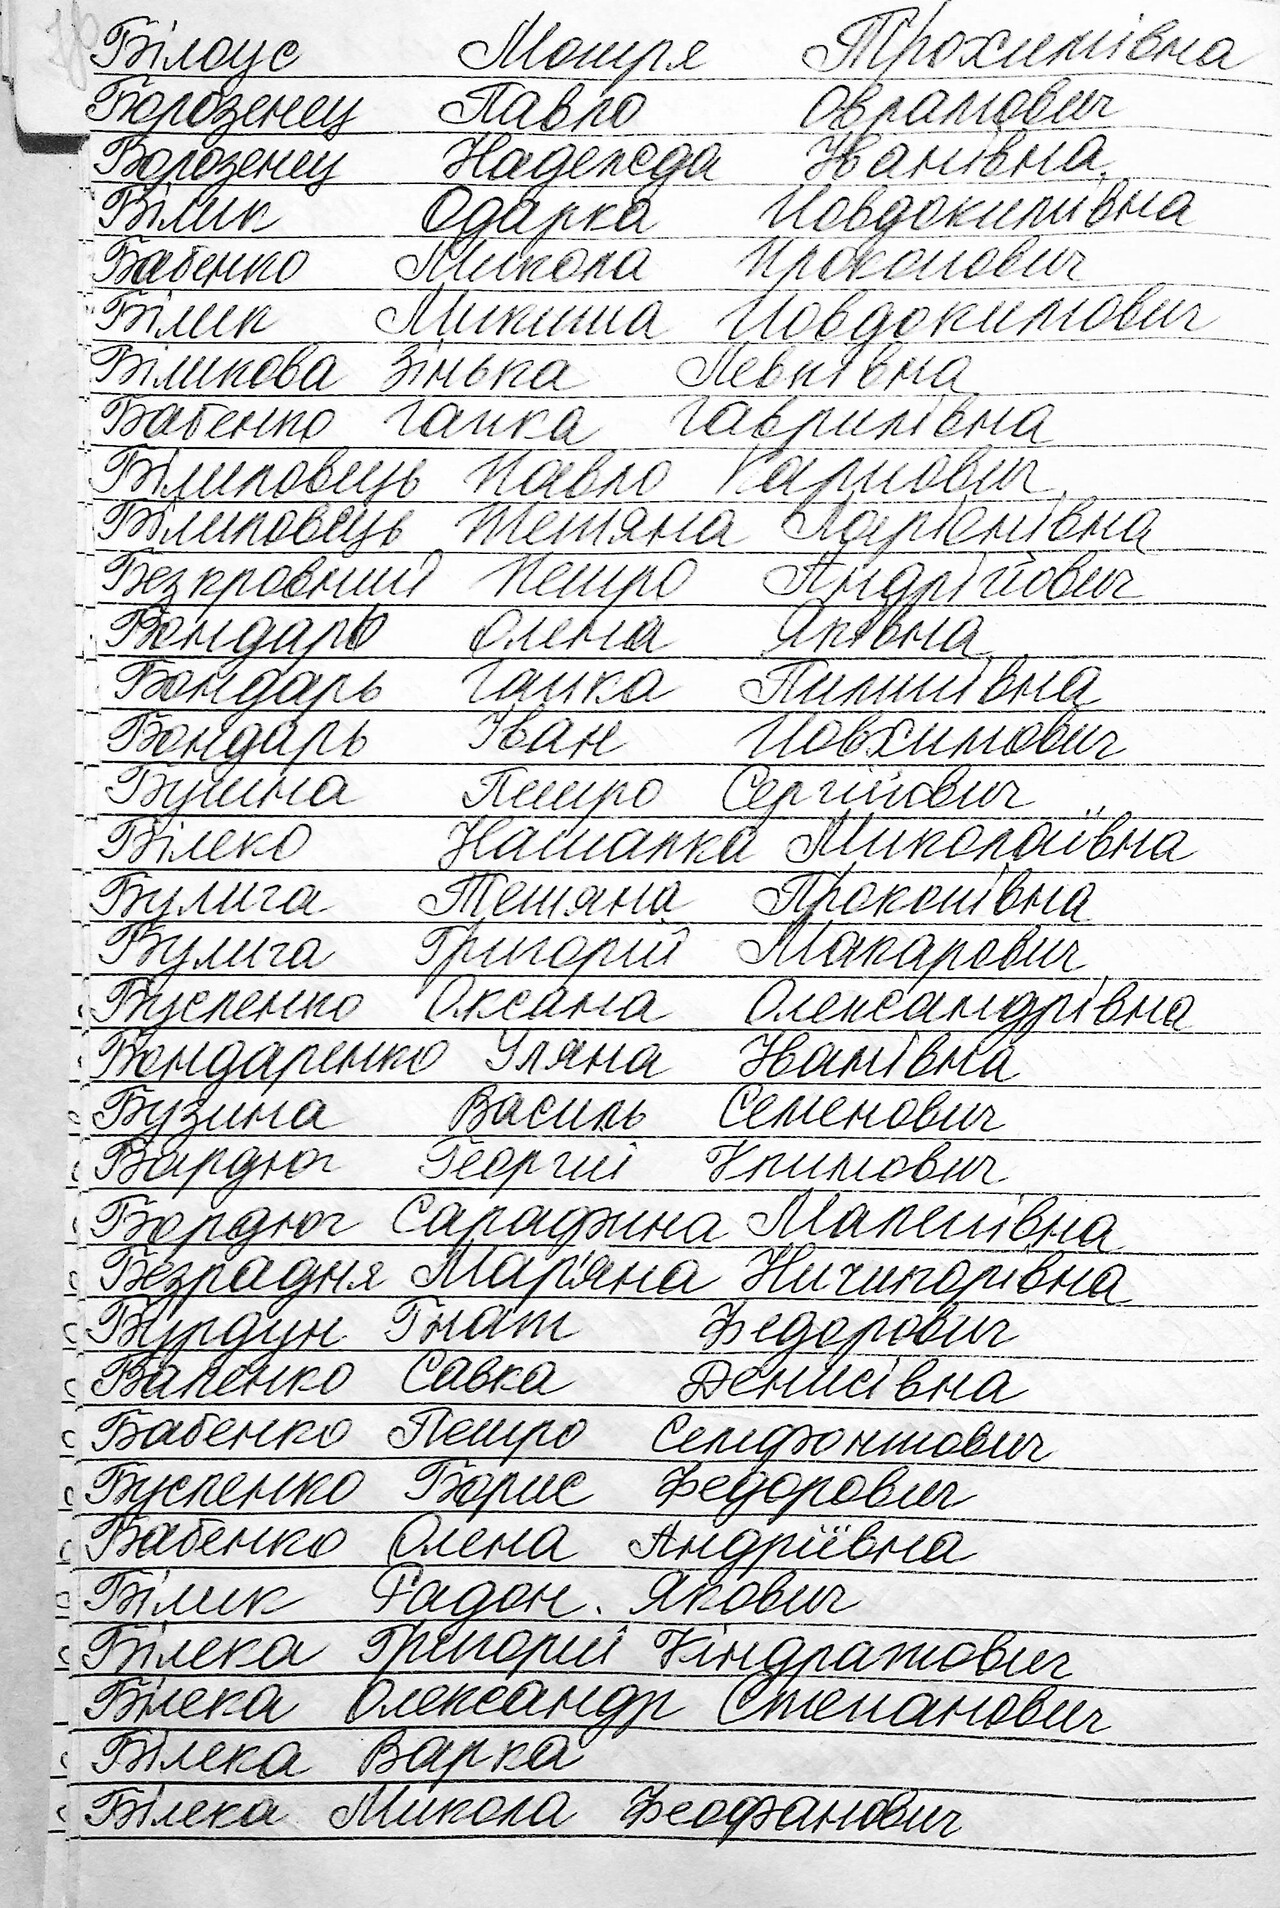 Білоус Мотря Трохимівна
Борозенец Павло Оврамович
Борозенец Надежда Іванівна
Білик Одарка Йовдокимівна
Бабенко Микола Прокопович
Білик Микита Йовдокимович
Біликова Зінька Левківна
Бабенко Галка Гаврилівна
Білиловець Павло Карпович
Білиловець Тетяна Ларіонівна
Безкровний Петро Андрійович
Бондарь Олена Яківна
Бондарь Галка Пилипівна
Бондарь Іван Йовхимович
Петро Сергійович
Білеко Наталка Миколаївна
Булига Тетяна Прокопівна
Булига Григорій Макарович
Бусленко Оксана Олександрівна
Бондаренко Уляна Іванівна
Бузина Василь Семенович
Бардюг Георгій Климович
Бордюг Сарафина Макеівна
Безрадня Мар'яна Ничипорівна
Бурдун Гнат Федорович
Баленко Савка Денисівна
Бабенко Петро Семфонтович
Бусленко Борис Федорович
Бабенко Олена Андріївна
Білик Радон. Якович
Білека Григорій Кіндратович
Білека Олександр Степанович
Білека Варка
Білека Микола Феофанович